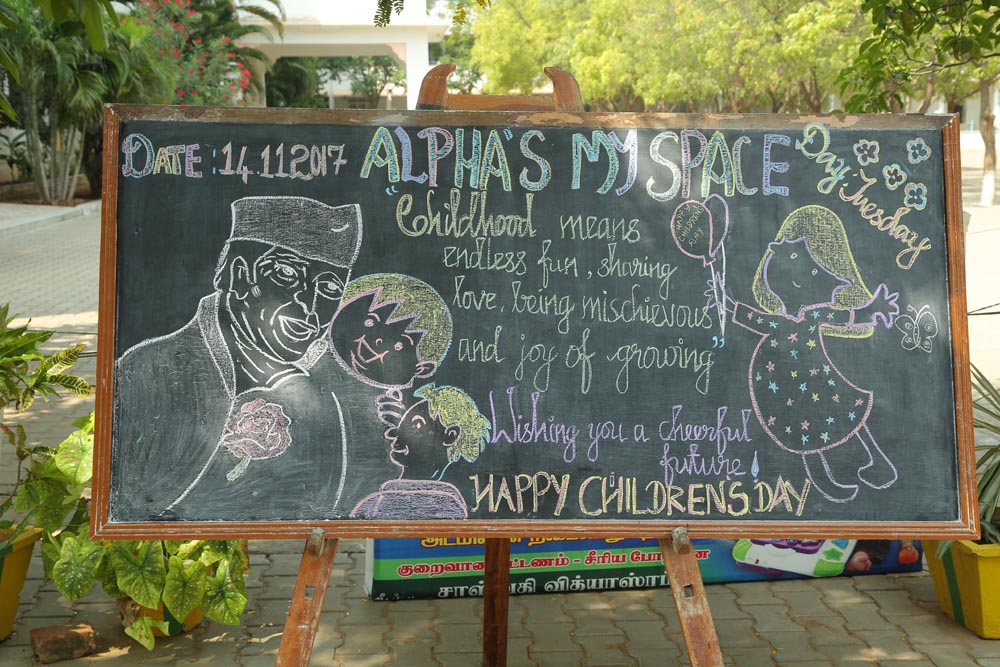 DATE: 14.11.2017
ALPHA'S MY SPACE
Day: Tuesday
"Childhood means
endless fun, sharing
love, being mischievous
and joy of growing"
HAPPY CHILDRENS DAY
Wishing you a cheerful
future!
HAPPY CHILDREN'S DAY
குறைவான கட்டணம் - சீரிய போ
சரஸ்வதி வித்யாஸ்ரம்